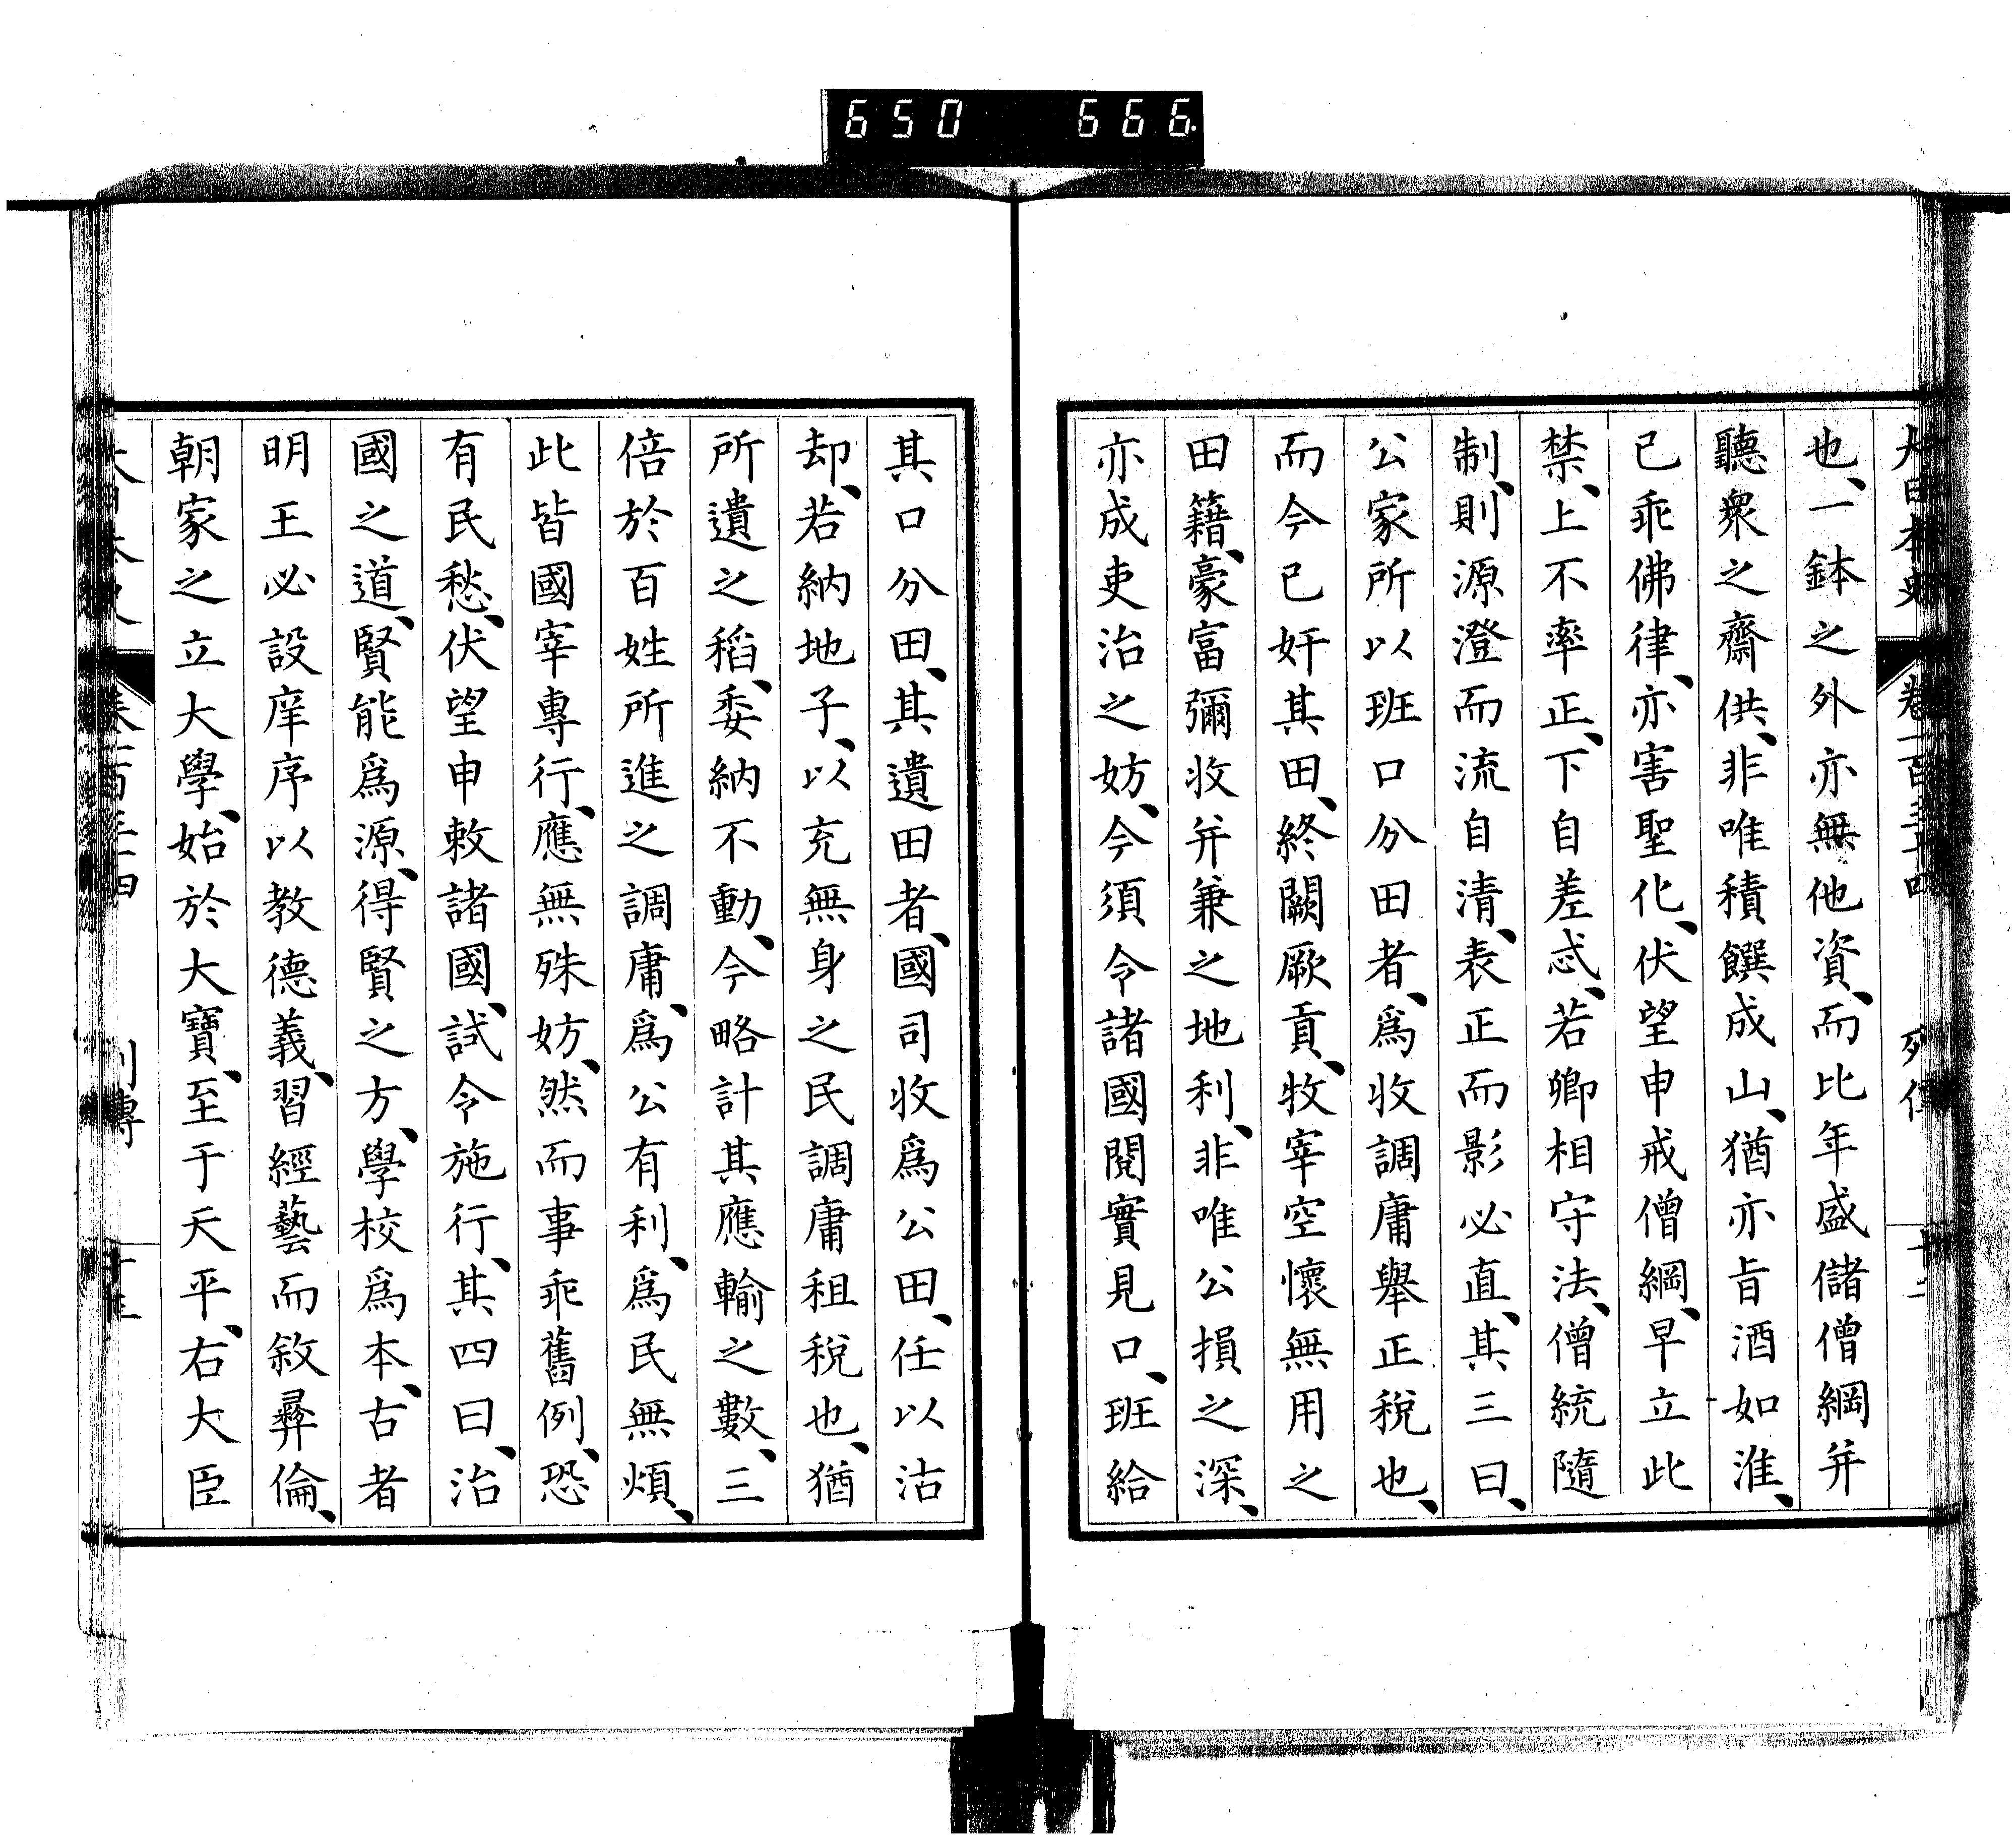 650 666.
大日本史 卷一百三十四 列傳
也、一鉢之外亦無他資、而比年盛儲僧綱并
聽衆之齋供、非唯積饌成山、猶亦旨酒如淮、
已乖佛律、亦害聖化、伏望申戒僧綱、早立此
禁、上不率正、下自差忒、若卿相守法、僧統隨
制、則源澄而流自清、表正而影必直、其三曰、
公家所以班口分田者、爲收調庸舉正税也、
而今已奸其田、終闕厥貢、牧宰空懷無用之
田籍、豪富彌收并兼之地利、非唯公損之深、
亦成吏治之妨、今須令諸國閱實見口、班給
其口分田、其遺田者、國司收爲公田、任以沽
却、若納地子、以充無身之民調庸租税也、猶
所遺之稻、委納不動、今略計其應輸之數、三
倍於百姓所進之調庸、爲公有利、爲民無煩、
此皆國宰專行、應無殊妨、然而事乖舊例、恐
有民愁、伏望申敕諸國、試令施行、其四曰、治
國之道、賢能爲源、得賢之方、學校爲本、古者
明王必設庠序以教德義、習經藝而敘彝倫、
朝家之立大學、始於大寶、至于天平、右大臣